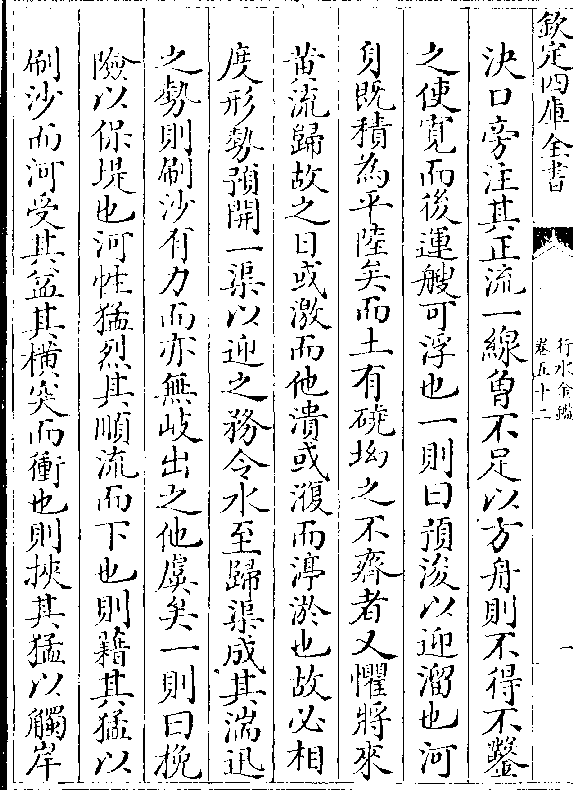 欽定四庫全書
行水金鑑
卷五十二
一
決口旁注其正流一線曾不足以方舟則不得不鑿
之使寛而後運艘可浮也一則曰預浚以迎溜也河
身既積為平陸矣而土有磽坳之不齊者又懼將來
黄流歸故之日或激而他潰或澓而渟淤也故必相
度形勢預開一渠以迎之務令水至歸渠成其湍迅
之勢則刷沙有力而亦無岐出之他虞矣一則曰挽
險以保堤也河性猛烈其順流而下也則藉其猛以
刷沙而河受其益其橫突而衝也則挾其猛以觸岸